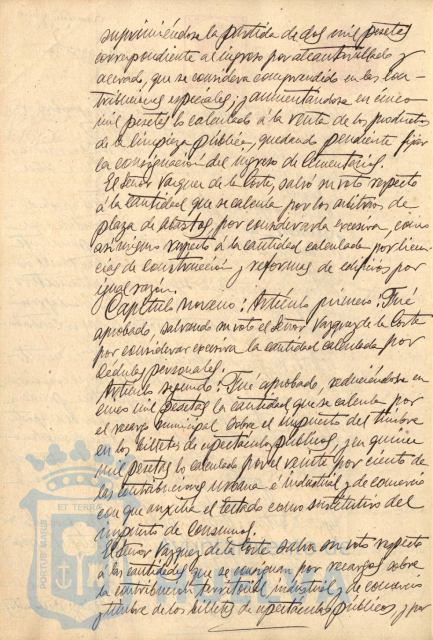 suprimiéndose la partida de dos mil pesetas
correspondiente al ingreso por alcantarillado y
acerado, que se considera comprendido en las con-
tribuciones especiales; y aumentándose en cinco
mil pesetas lo calculado á la venta de los productos
de la limpieza pública, quedando pendiente fijar
la consignación del ingreso de Cementerios.
El Señor Vazquez de la Corte, salvó su voto respecto
á la cantidad que se calcula por los arbitrios de
plaza de abastos, por considerarla excesiva, como
asimismo respecto á la cantidad calculada por licen-
cias de construcción y reformas de edificios por
igual razón.
Capítulo noveno: Artículo primero: Fué
aprobado, salvando su voto el Señor Vazquez de la Corte
por considerar excesiva la cantidad calculada por
cédulas personales.
Artículo segundo: Fué aprobado, reduciéndose en
mil pesetas la cantidad que se calcula por
el recargo municipal sobre el impuesto del timbre
en los billetes de espectáculos públicos, y en quince
mil pesetas lo calculado por el veinte por ciento de
las contribuciones urbana é industrial y de comercio
con que auxilia el Estado como sustitutivo del
impuesto de consumos.
El Señor Vazquez de la Corte salva su voto respecto
á las cantidades que se consignan por recargo sobre
la contribución territorial, industrial y de comercio
y timbre de los billetes de espectáculos públicos, y por
PORTUS MARIS
ET TERRA